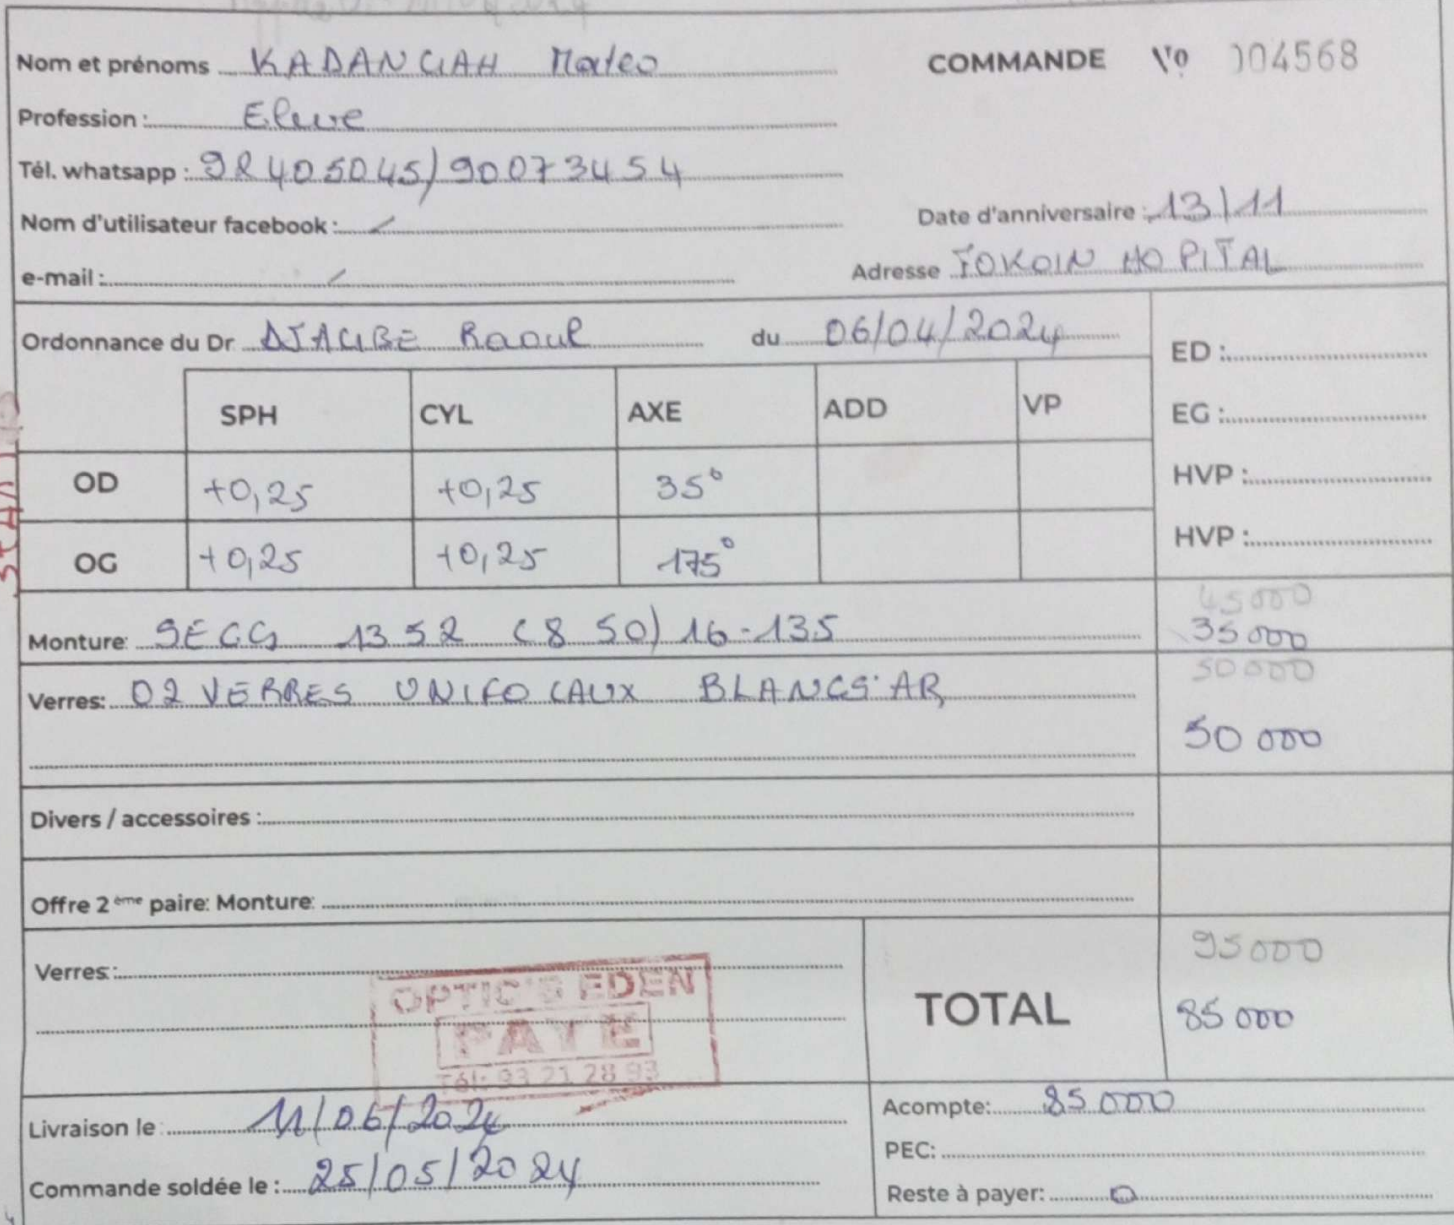 Nom et prénoms KADANGAH Mateo
COMMANDE N° 004568
Profession : Eleve
Tél. whatsapp : 92405045/90073454
Nom d'utilisateur facebook : /
Date d'anniversaire : 13/11
e-mail : /
Adresse TOKOIN HOPITAL
Ordonnance du Dr DJAGBE Raoul du 06/04/2024
ED :
SPH CYL AXE ADD VP
EG :
OD +0,25 +0,25 35°
HVP :
OG +0,25 +0,25 175°
HVP :
45000
Monture: SEGG 1352 C8 50)16-135 35000
50000
Verres: 02 VERRES UNIFOCAUX BLANCS AR
50 000
Divers / accessoires :
Offre 2 ème paire: Monture:
Verres :
95000
OPTIC'S EDEN
PAYE
Tél: 93 21 28 93
TOTAL 85 000
Livraison le : 11/06/2024
Acompte: 85 000
PEC:
Commande soldée le : 25/05/2024
Reste à payer: 0